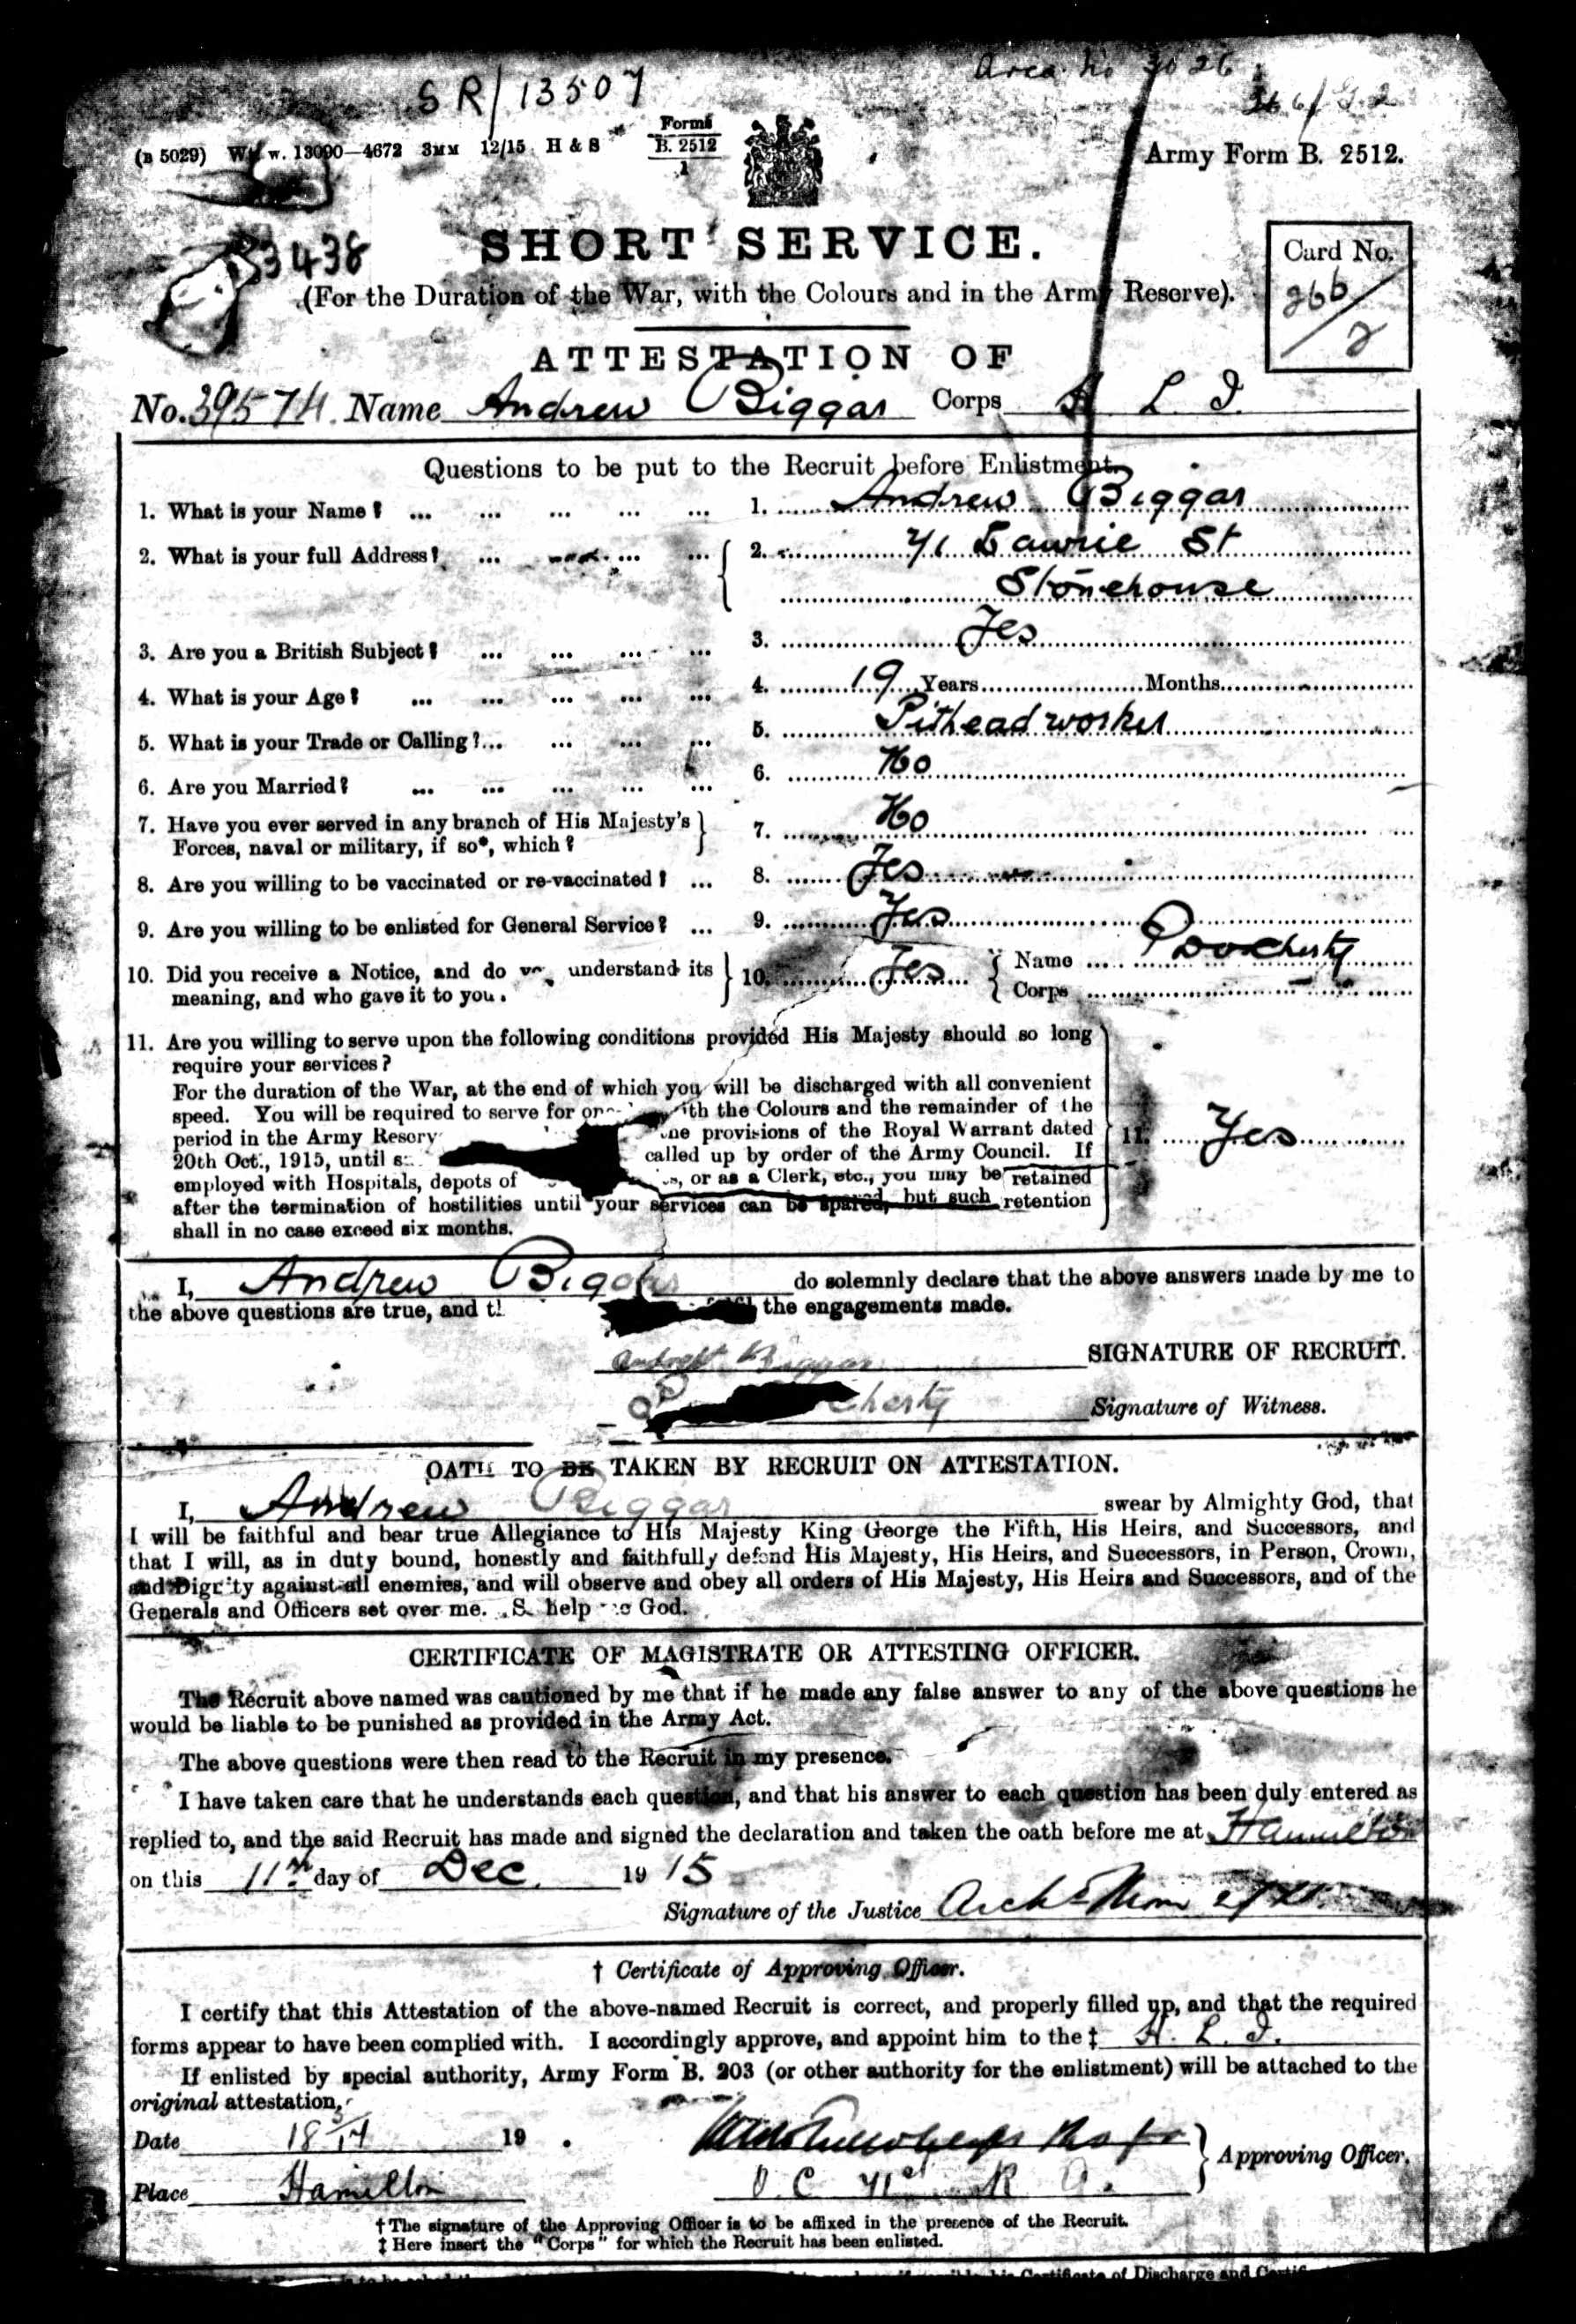 SR/13507
Area No 3026
(B 5029) W. w. 13090—4672 3MM 12/15 H & S Forms B. 2512 1
Army Form B. 2512.
3438
SHORT SERVICE.
Card No.
266/2
(For the Duration of the War, with the Colours and in the Army Reserve).
ATTESTATION OF
No. 39574 Name Andrew Biggar Corps H L I.
Questions to be put to the Recruit before Enlistment.
1. What is your Name? ... ... ... ... ... 1. Andrew Biggar
2. What is your full Address? ... ... ... 2. 41 Lawrie St
Stonehouse
3. Are you a British Subject? ... ... ... ... 3. Yes
4. What is your Age? ... ... ... ... ... 4. 19 Years Months
5. What is your Trade or Calling?... ... ... ... 5. Pithead worker
6. Are you Married? ... ... ... ... ... 6. No
7. Have you ever served in any branch of His Majesty's
Forces, naval or military, if so*, which? 7. No
8. Are you willing to be vaccinated or re-vaccinated? ... 8. Yes
9. Are you willing to be enlisted for General Service? ... 9. Yes
10. Did you receive a Notice, and do understand its
meaning, and who gave it to you. 10. Yes { Name P Docherty
Corps
11. Are you willing to serve upon the following conditions provided His Majesty should so long
require your services?
For the duration of the War, at the end of which you will be discharged with all convenient
speed. You will be required to serve for with the Colours and the remainder of the
period in the Army Reserv provisions of the Royal Warrant dated
20th Oct., 1915, until called up by order of the Army Council. If 11. Yes
employed with Hospitals, depots of or as a Clerk, etc., you may be retained
after the termination of hostilities until your services can be spared, but such retention
shall in no case exceed six months.
I, Andrew Biggar do solemnly declare that the above answers made by me to
the above questions are true, and the engagements made.
Andrew Biggar SIGNATURE OF RECRUIT.
cherty Signature of Witness.
OATH TO BE TAKEN BY RECRUIT ON ATTESTATION.
I, Andrew Biggar swear by Almighty God, that
I will be faithful and bear true Allegiance to His Majesty King George the Fifth, His Heirs, and Successors, and
that I will, as in duty bound, honestly and faithfully defend His Majesty, His Heirs, and Successors, in Person, Crown,
and Dignity against all enemies, and will observe and obey all orders of His Majesty, His Heirs and Successors, and of the
Generals and Officers set over me. So help me God.
CERTIFICATE OF MAGISTRATE OR ATTESTING OFFICER.
The Recruit above named was cautioned by me that if he made any false answer to any of the above questions he
would be liable to be punished as provided in the Army Act.
The above questions were then read to the Recruit in my presence.
I have taken care that he understands each question, and that his answer to each question has been duly entered as
replied to, and the said Recruit has made and signed the declaration and taken the oath before me at Hamilton
on this 11th day of Dec. 1915
Signature of the Justice
† Certificate of Approving Officer.
I certify that this Attestation of the above-named Recruit is correct, and properly filled up, and that the required
forms appear to have been complied with. I accordingly approve, and appoint him to the ‡ H. L. I.
If enlisted by special authority, Army Form B. 203 (or other authority for the enlistment) will be attached to the
original attestation.
Date 19
Approving Officer.
Place Hamilton
† The signature of the Approving Officer is to be affixed in the presence of the Recruit.
‡ Here insert the "Corps" for which the Recruit has been enlisted.
Certificate of Discharge and